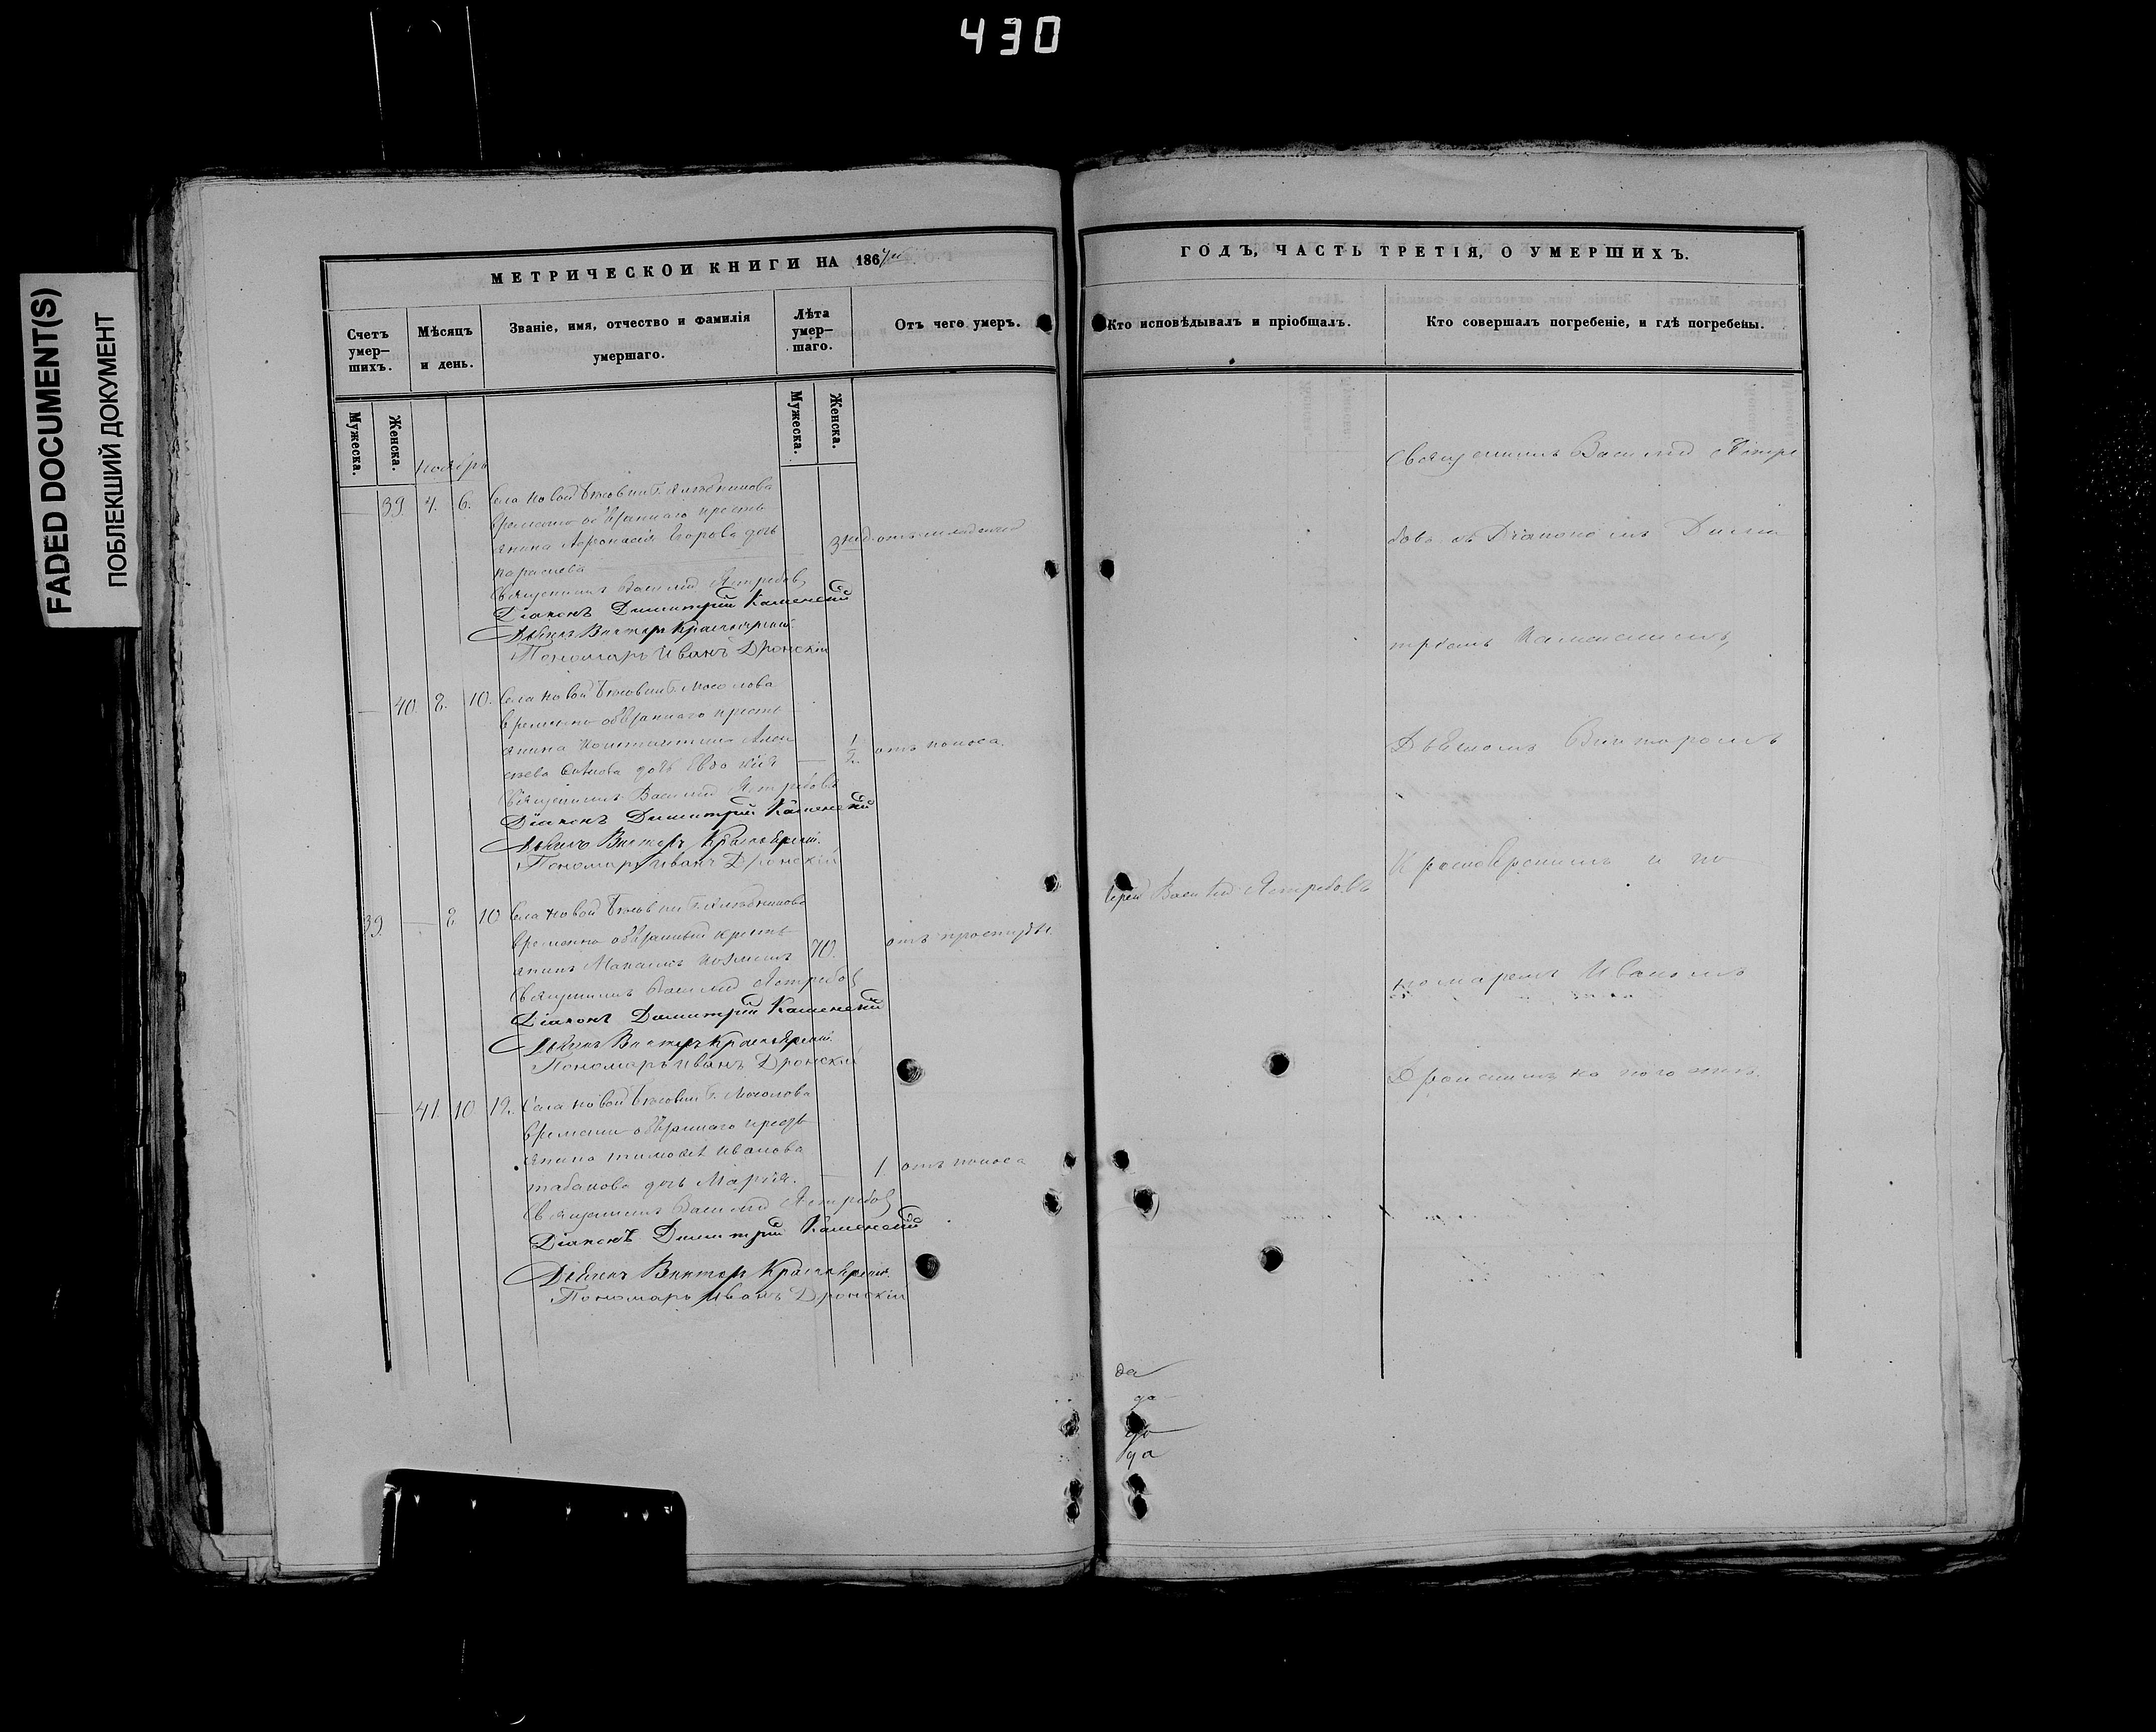 430
FADED DOCUMENT(S)
ПОБЛЕКШИЙ ДОКУМЕНТ
МЕТРИЧЕСКОЙ КНИГИ НА 1867
Счетъ умер-
шихъ.
Мѣсяцъ
и день.
Званіе, имя, отчество и фамилія
умершаго.
Лѣта
умер-
шаго.
Отъ чего умеръ.
Мужеска.
Женска.
Мужеска.
Женска.
Ноябрь
39. 4. 6. Села Новой
временно-обязаннаго кресть
янина Егорова дочь
3 нед.
Священникъ Василій Ястребовъ
Діаконъ Димитрій Каменскій
Дьячекъ Викторъ Красноярскій
Пономарь Иванъ Дронскій
40. 8. 10. Села Новой
временно-обязаннаго кресть
янина Константина Алек
сѣева дочь Евдокія
1/2 отъ поноса.
Священникъ Василій Ястребовъ
Діаконъ Димитрій Каменскій
Дьячекъ Викторъ Красноярскій
Пономарь Иванъ Дронскій
39. 8 10 Села Новой
временно обязанный кресть
янинъ 70. отъ простуды.
Священникъ Василій Ястребовъ
Діаконъ Димитрій Каменскій
Дьячекъ Викторъ Красноярскій
Пономарь Иванъ Дронскій
41. 10 12. Села Новой
временно-обязаннаго кресть
янина Тимофея Иванова
Табакова дочь Марія. 1 отъ поноса
Священникъ Василій Ястребовъ
Діаконъ Димитрій Каменскій
Дьячекъ Викторъ Красноярскій
Пономарь Иванъ Дронскій
ГОДЪ, ЧАСТЬ ТРЕТІЯ, О УМЕРШИХЪ.
Кто исповѣдывалъ и пріобщалъ.
Кто совершалъ погребеніе, и гдѣ погребены.
Іерей Василій Ястребовъ
Священникъ Василій Ястре
бовъ съ Діакономъ Дими
тріемъ Каменскимъ,
Дьячкомъ Викторомъ
Красноярскимъ и по
номаремъ Иваномъ
Дронскимъ на погостѣ.
да
да
да
да